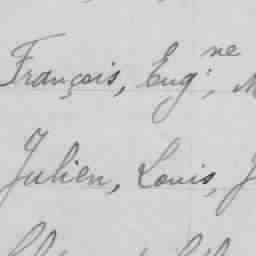 François, Eug.ne,
Julien, Louis,